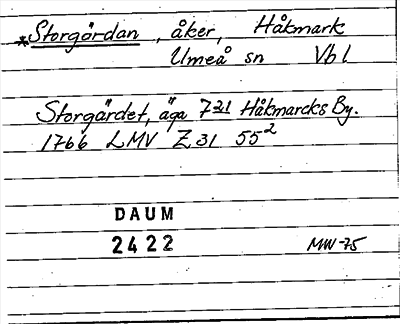 *Storgärdan, åker, Håkmark
Umeå sn Vbl
Storgärdet, äga 721 Håkmarcks By.
1766 LMV Z 31 55²
DAUM
2422 MW-75